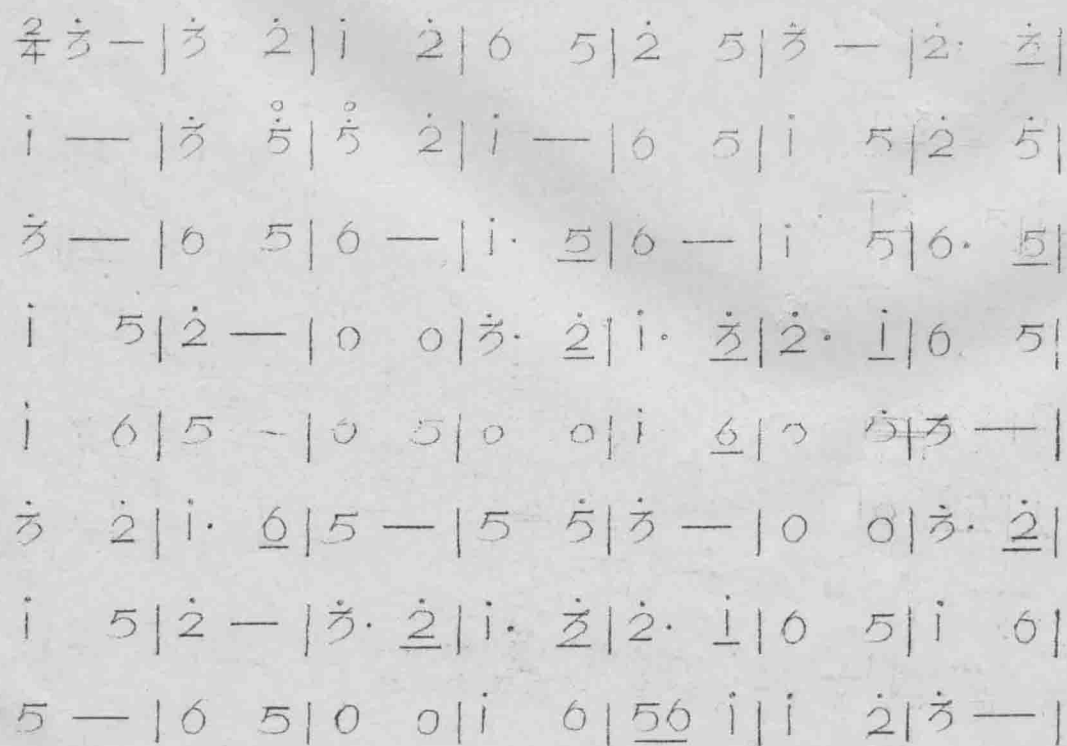 2/4 3̇ — | 3̇ 2̇ | i 2̇ | 6 5 | 2̇ 5 | 3̇ — | 2̇· 3̲̇ |
i — | 3̇ 5̇̊ | 5̇̊ 2̇ | i — | 6 5 | i 5 | 2̇ 5̇ |
3̇ — | 6 5 | 6 — | i· 5̲ | 6 — | i 5 | 6· 5̲ |
i 5 | 2̇ — | 0 0 | 3̇· 2̲̇ | i· 3̲̇ | 2̇· i̲ | 6 5 |
i 6 | 5 - | 0 5 | 0 0 | i 6̲ | 0 5̇ | 3 — |
3̇ 2̇ | i· 6̲ | 5 — | 5 5̇ | 3̇ — | 0 0 | 3̇· 2̲̇ |
i 5 | 2̇ — | 3̇· 2̲̇ | i· 3̲̇ | 2̇· i̲ | 6 5 | i 6 |
5 — | 6 5 | 0 0 | i 6 | 5̲6̲ i | i 2̇ | 3̇ — |